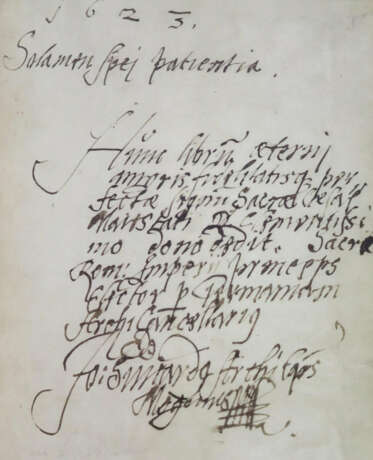 1623.
Salamen spej patientia.
Hunc librū æternj
amoris, fidelitatisq, per
fectæ signū Sacræ Cæsaræ
Maiestati
mo dono dedit. Sacri
Rom: Imperij princeps
Elector p Germaniam
ArchiCancellarius
Jo: Suicardq Archieps
Mogontinus